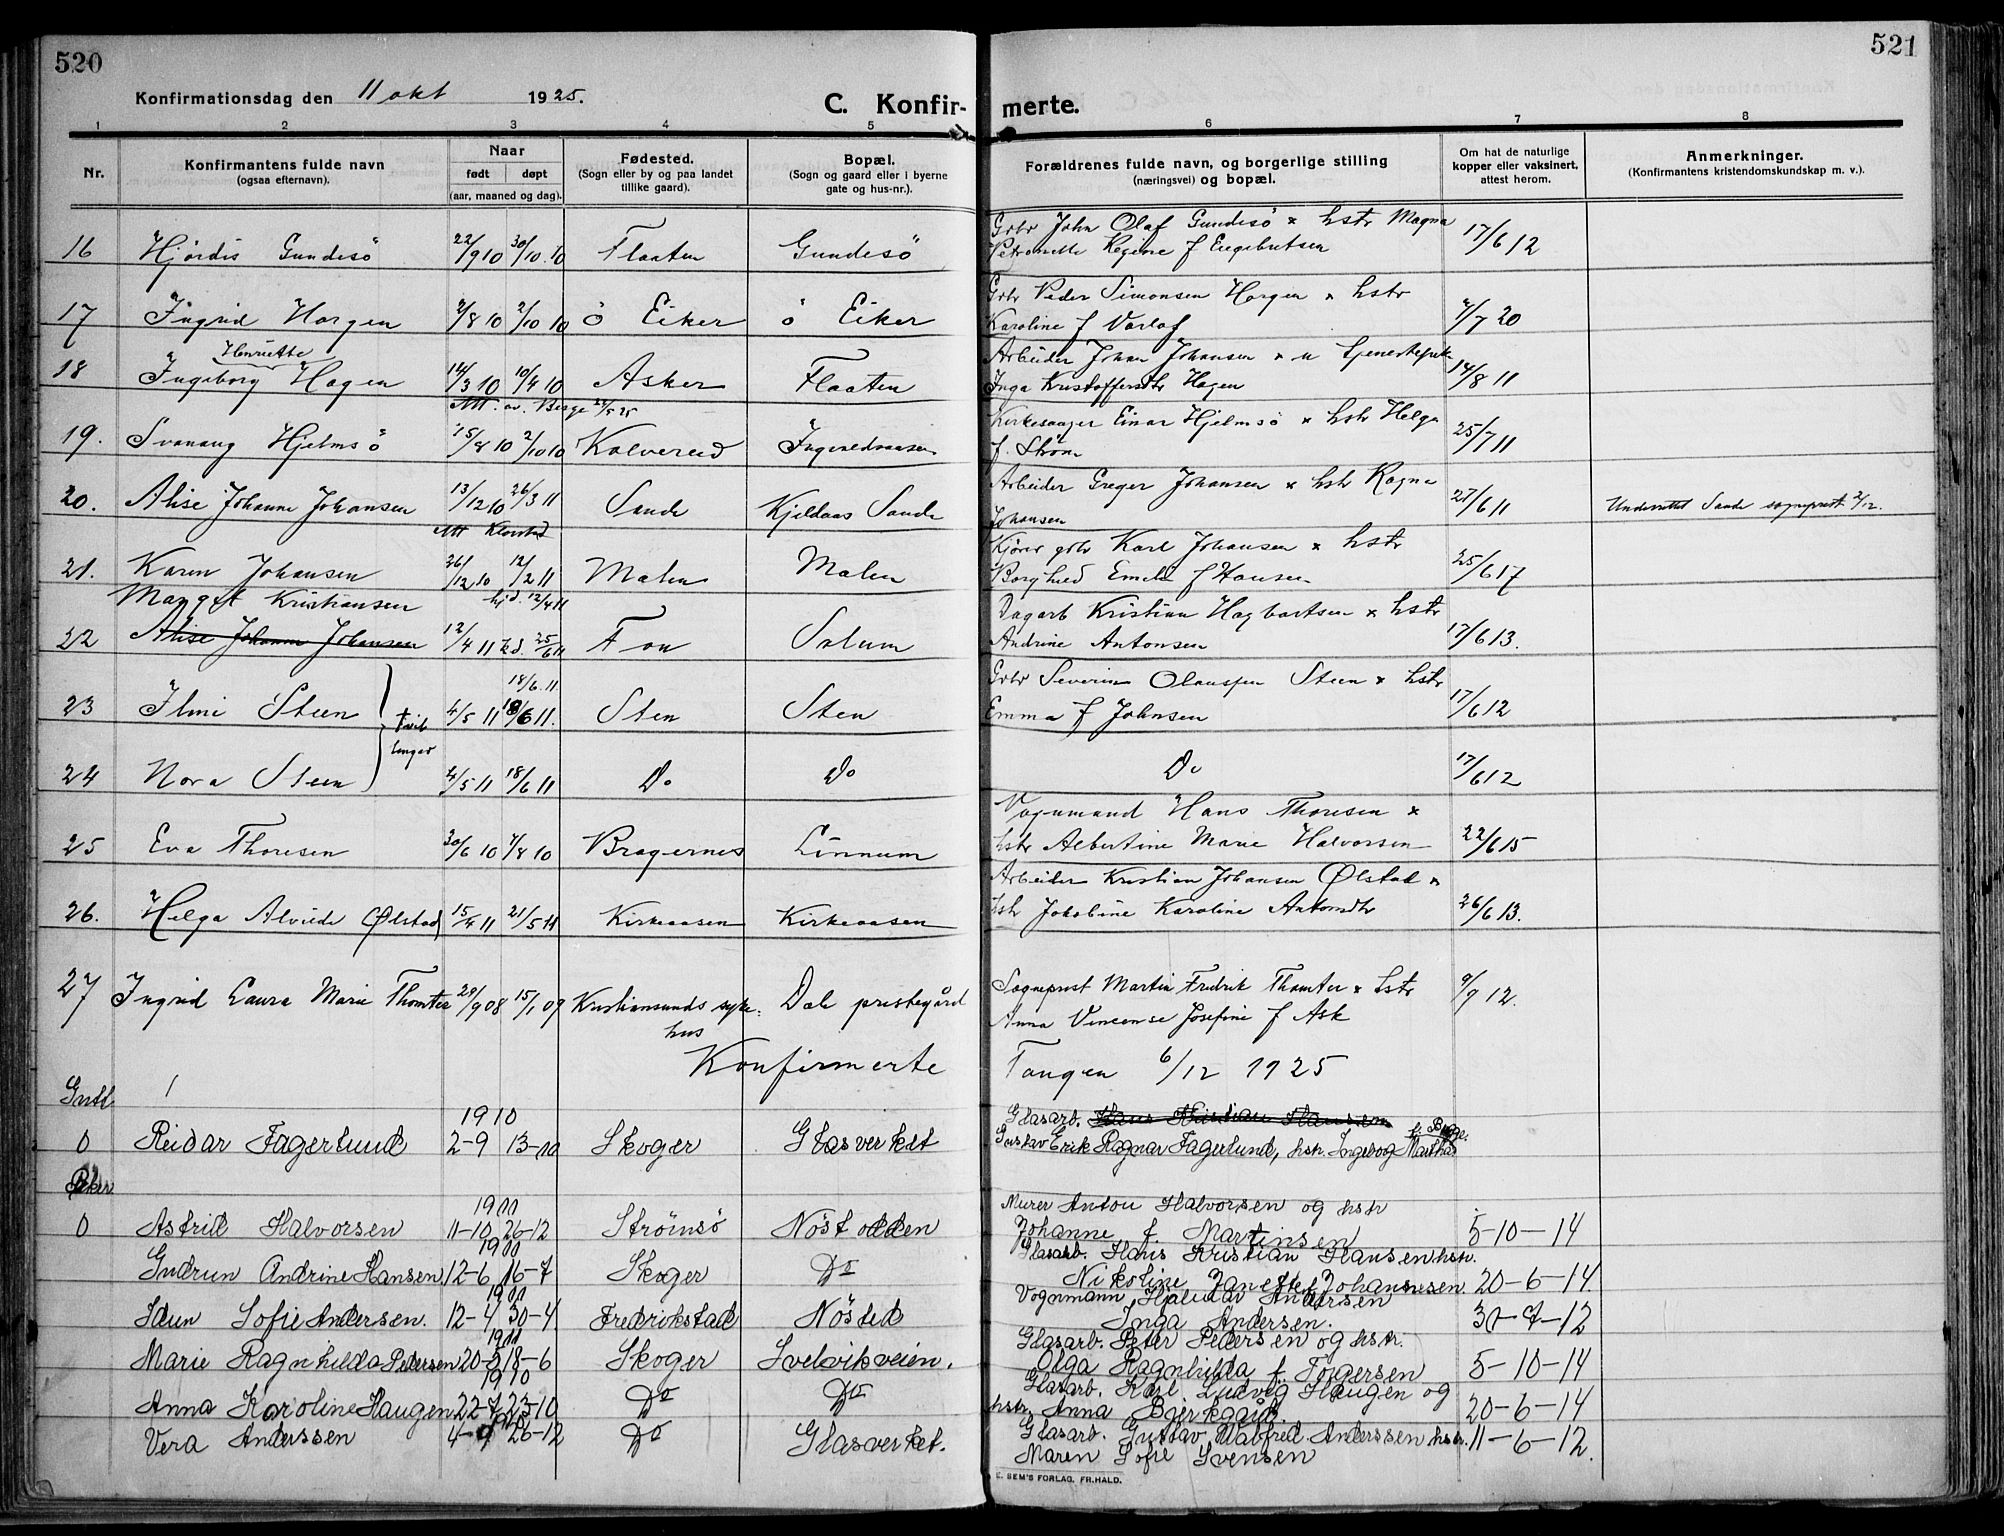 520
521
Konfirmationsdag den 11 okt 1925.
C. Konfirmerte.
1 2 3 4 5 6 7 8
Nr.
Konfirmantens fulde navn
(ogsaa efternavn).
Naar
født døpt
(aar, maaned og dag).
Fødested.
(Sogn eller by og paa landet
tillike gaard).
Bopæl.
(Sogn og gaard eller i byerne
gate og hus-nr.).
Forældrenes fulde navn, og borgerlige stilling
(næringsvei) og bopæl.
Om hat de naturlige
kopper eller vaksinert,
attest herom.
Anmerkninger.
(Konfirmantens kristendomskundskap m. v.).
Gbr John Olaf Gundesö x hstr Magna
16 Hjördis Gundesö 22/9 10 30/10.10 Flaaten Gundesö Petronelle Regine f Engebretsen 17/6 12
Gbr Peder Simonsen Horgen x hstr
17 Ingrid Horgen 2/8 10 2/10 10 ö Eiker ö Eiker Karoline f Varlo 7/7 20
Henriette
Arbeider Johan Johansen x u tjenestepik
18 Ingeborg Hagen 14/3 10 10/4 10 Asker Flaaten Inga Kristoffersdtr Hagen 14/8 11
Att. av. Berge 22/5 25
Kirkesanger Einar Hjelmsö x hstr Helga
19. Svanaug Hjelmsö 15/8 10 2/10 10 Kolvereid Ingvaldsaasen f. Ström 25/7 11
Arbeider Greger Johansen x hstr Ragna
20. Alise Johanne Johansen 13/12 10 26/3 11 Sande Kjeldaas Sande Johansen 27/6 11 Underrettet Sande sogneprest 2/12.
Att
Kjörer gbr Karl Johansen x hstr
21. Karen Johansen 26/12 10 12/2 11 Malen Malen Borghild Emelie f Hansen 25/6 17
Margit Kristiansen hj.d. 12/4 11
Dagarb Kristian Hagbartsen x hstr
22 Alise Johanne Johansen 12/4 11 k.d. 25/6 11 Fon Solum Andrine Antonsen 17/6 13.
18/6.11
Gbr Severin Olaussen Steen x hstr
23 Ilmi Steen 4/5 11 18/6 11. Sten Sten Emma f Johnsen 17/6 12
Tvillinger
24 Nora Steen 4/5 11 18/6 11 Do Do Do 17/6 12
Vognmand Hans Thoresen x
25 Eva Thoresen 30/6 10 7/8 10 Bragernes Linnum hstr Albertine Marie Halvorsen 22/6 15
Arbeider Kristian Johansen Ølstad x
26. Helga Alvilde Ølstad 15/4 11 21/5 11 Kirkeaasen Kirkeaasen hstr Jakobine Karoline Antonsdtr 26/6 13.
27 Ingrid Laura Marie Thomter 29/9 08 15/1 09 Kristiansunds syke- Dal prestegård Sogneprest Martin Fredrik Thomter x hstr 9/9 12.
hus Anna Vincense Josefine f Ask
Konfirmerte Tangen 6/12 1925
Gutt
1910
Glasarb. Hans Kristian Hansen f. Bøge.
0 Reidar Fagerlund 2-9 13-10 Skoger Glasverket Gustav Erik Ragnar Fagerlund, hstr. Ingeborg Martha
Piker
1911
Murer Anton Halvorsen og hstr
0 Astrid Halvorsen 11-10 26-12 Strömsö Nöstodden Johanne f. Martinsen 5-10-14
1911
Glasarb. Hans Kristian Hansen hstr.
Gudrun Andrine Hansen 12-6 16-7 Skoger Do Nikoline Janette f. Johannesen. 20-6-14.
1911
Vognmann Hjalmar Andersen
Idun Sofie Andersen. 12-4 30-4 Fredrikstad Nösted Inga Andersen. 30-7-12
1911
Glasarb. Peter Pedersen og hstr.
Marie Ragnhilda Pedersen 20-5 18-6 Skoger Svelvikveien. Olga Ragnhilda f. Torgersen 5-10-14
1910
Glasarb. Karl Ludvig Haugen og
Anna Karoline Haugen 22-7 23-10 Do Do hstr. Anna Bjerkgård. 20-6-14
1910
Glasarb. Gustav Walfred Anderssen hstr.
Vera Anderssen 4-9 26-12 Do Glasverket. Maren Sofie Svensen 11-6-12.
E. SEM'S FORLAG, FR.HALD.